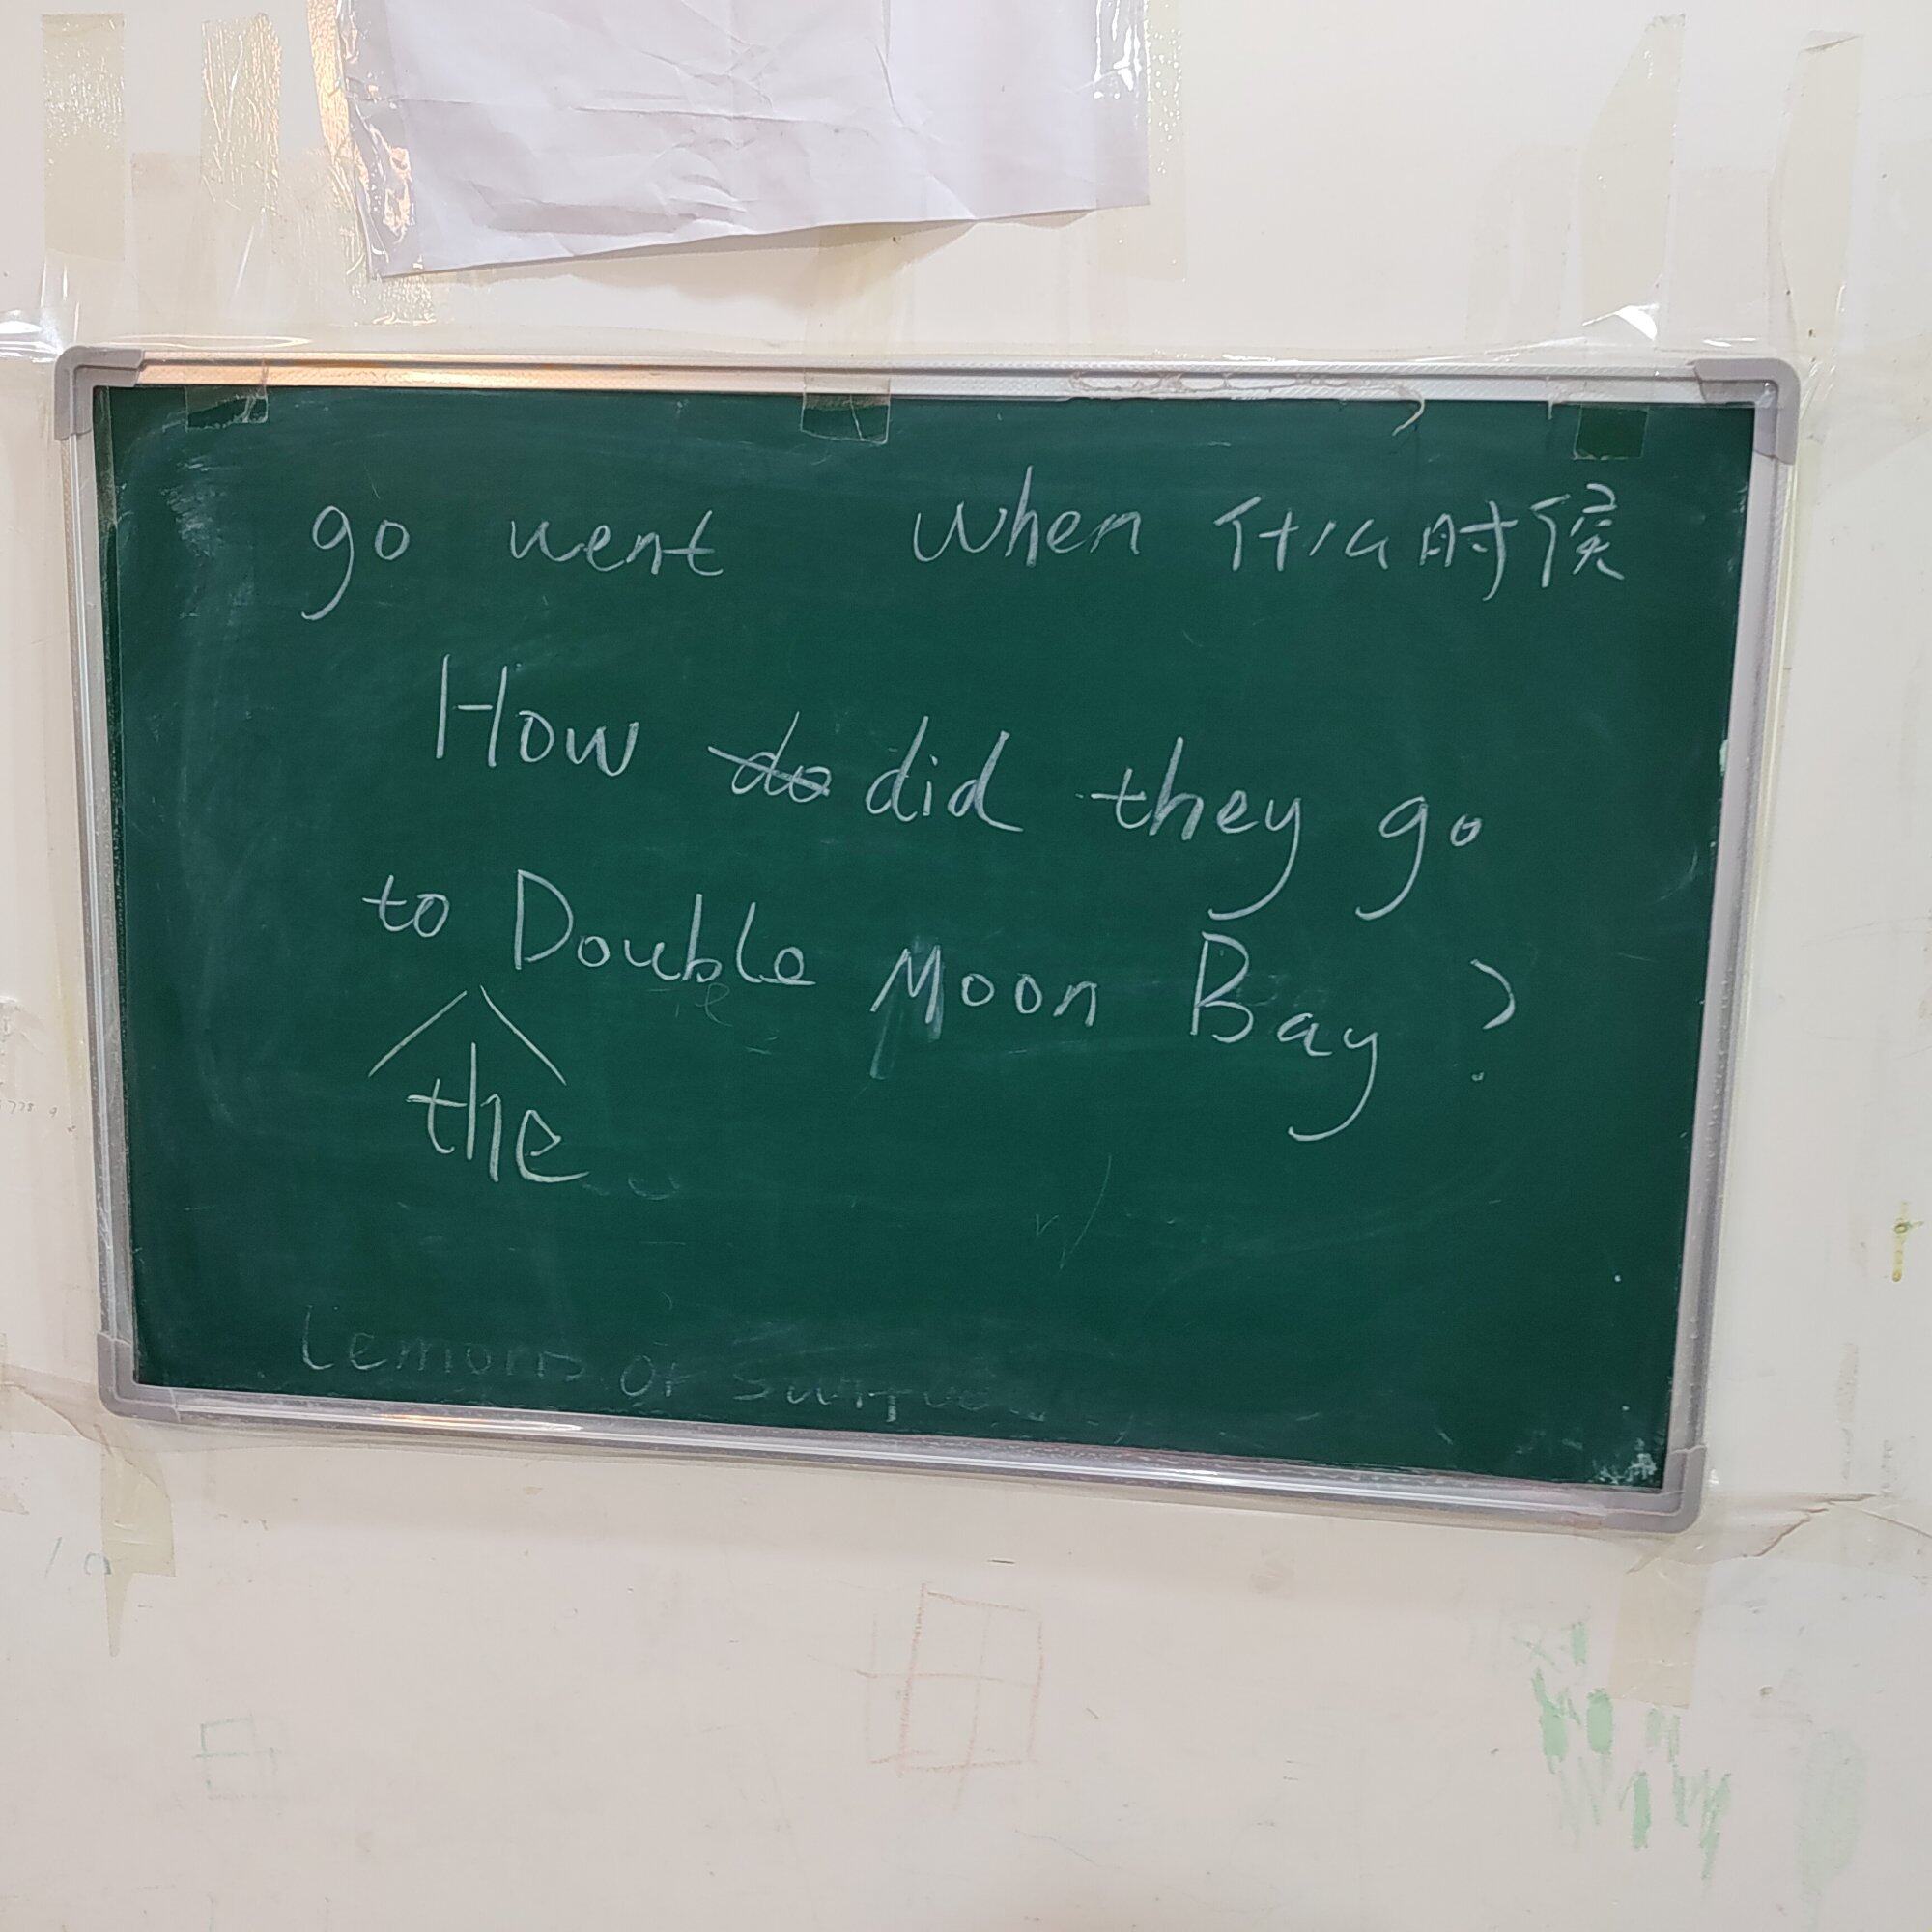 go went when 什么时候
How do did they go
to Double Moon Bay?
the